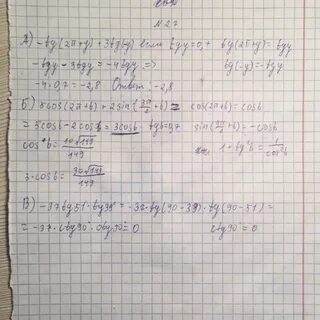 №27
А) -tg(2π+y) + 3tg(-y) если tgy=0,7 tg(2π+y)=tgy
-tgy - 3tgy = -4tgy => tg(-y)=-tgy
-4·0,7 = -2,8 Ответ: -2,8
Б) 5cos(2π+b)+2sin(3π/2+b) = cos(2π+b)=cosb
= 5cosb-2cosb=3cosb tgb=0,7 sin(3π/2+b)=-cosb
cosb = 10√149/149 1+tg²b=1/cos²b
3·cosb = 30√149/149
В) -37tg51·tg39 = -37·tg(90-39)·tg(90-51)=
= -37·ctg90·ctg90=0 ctg90=0